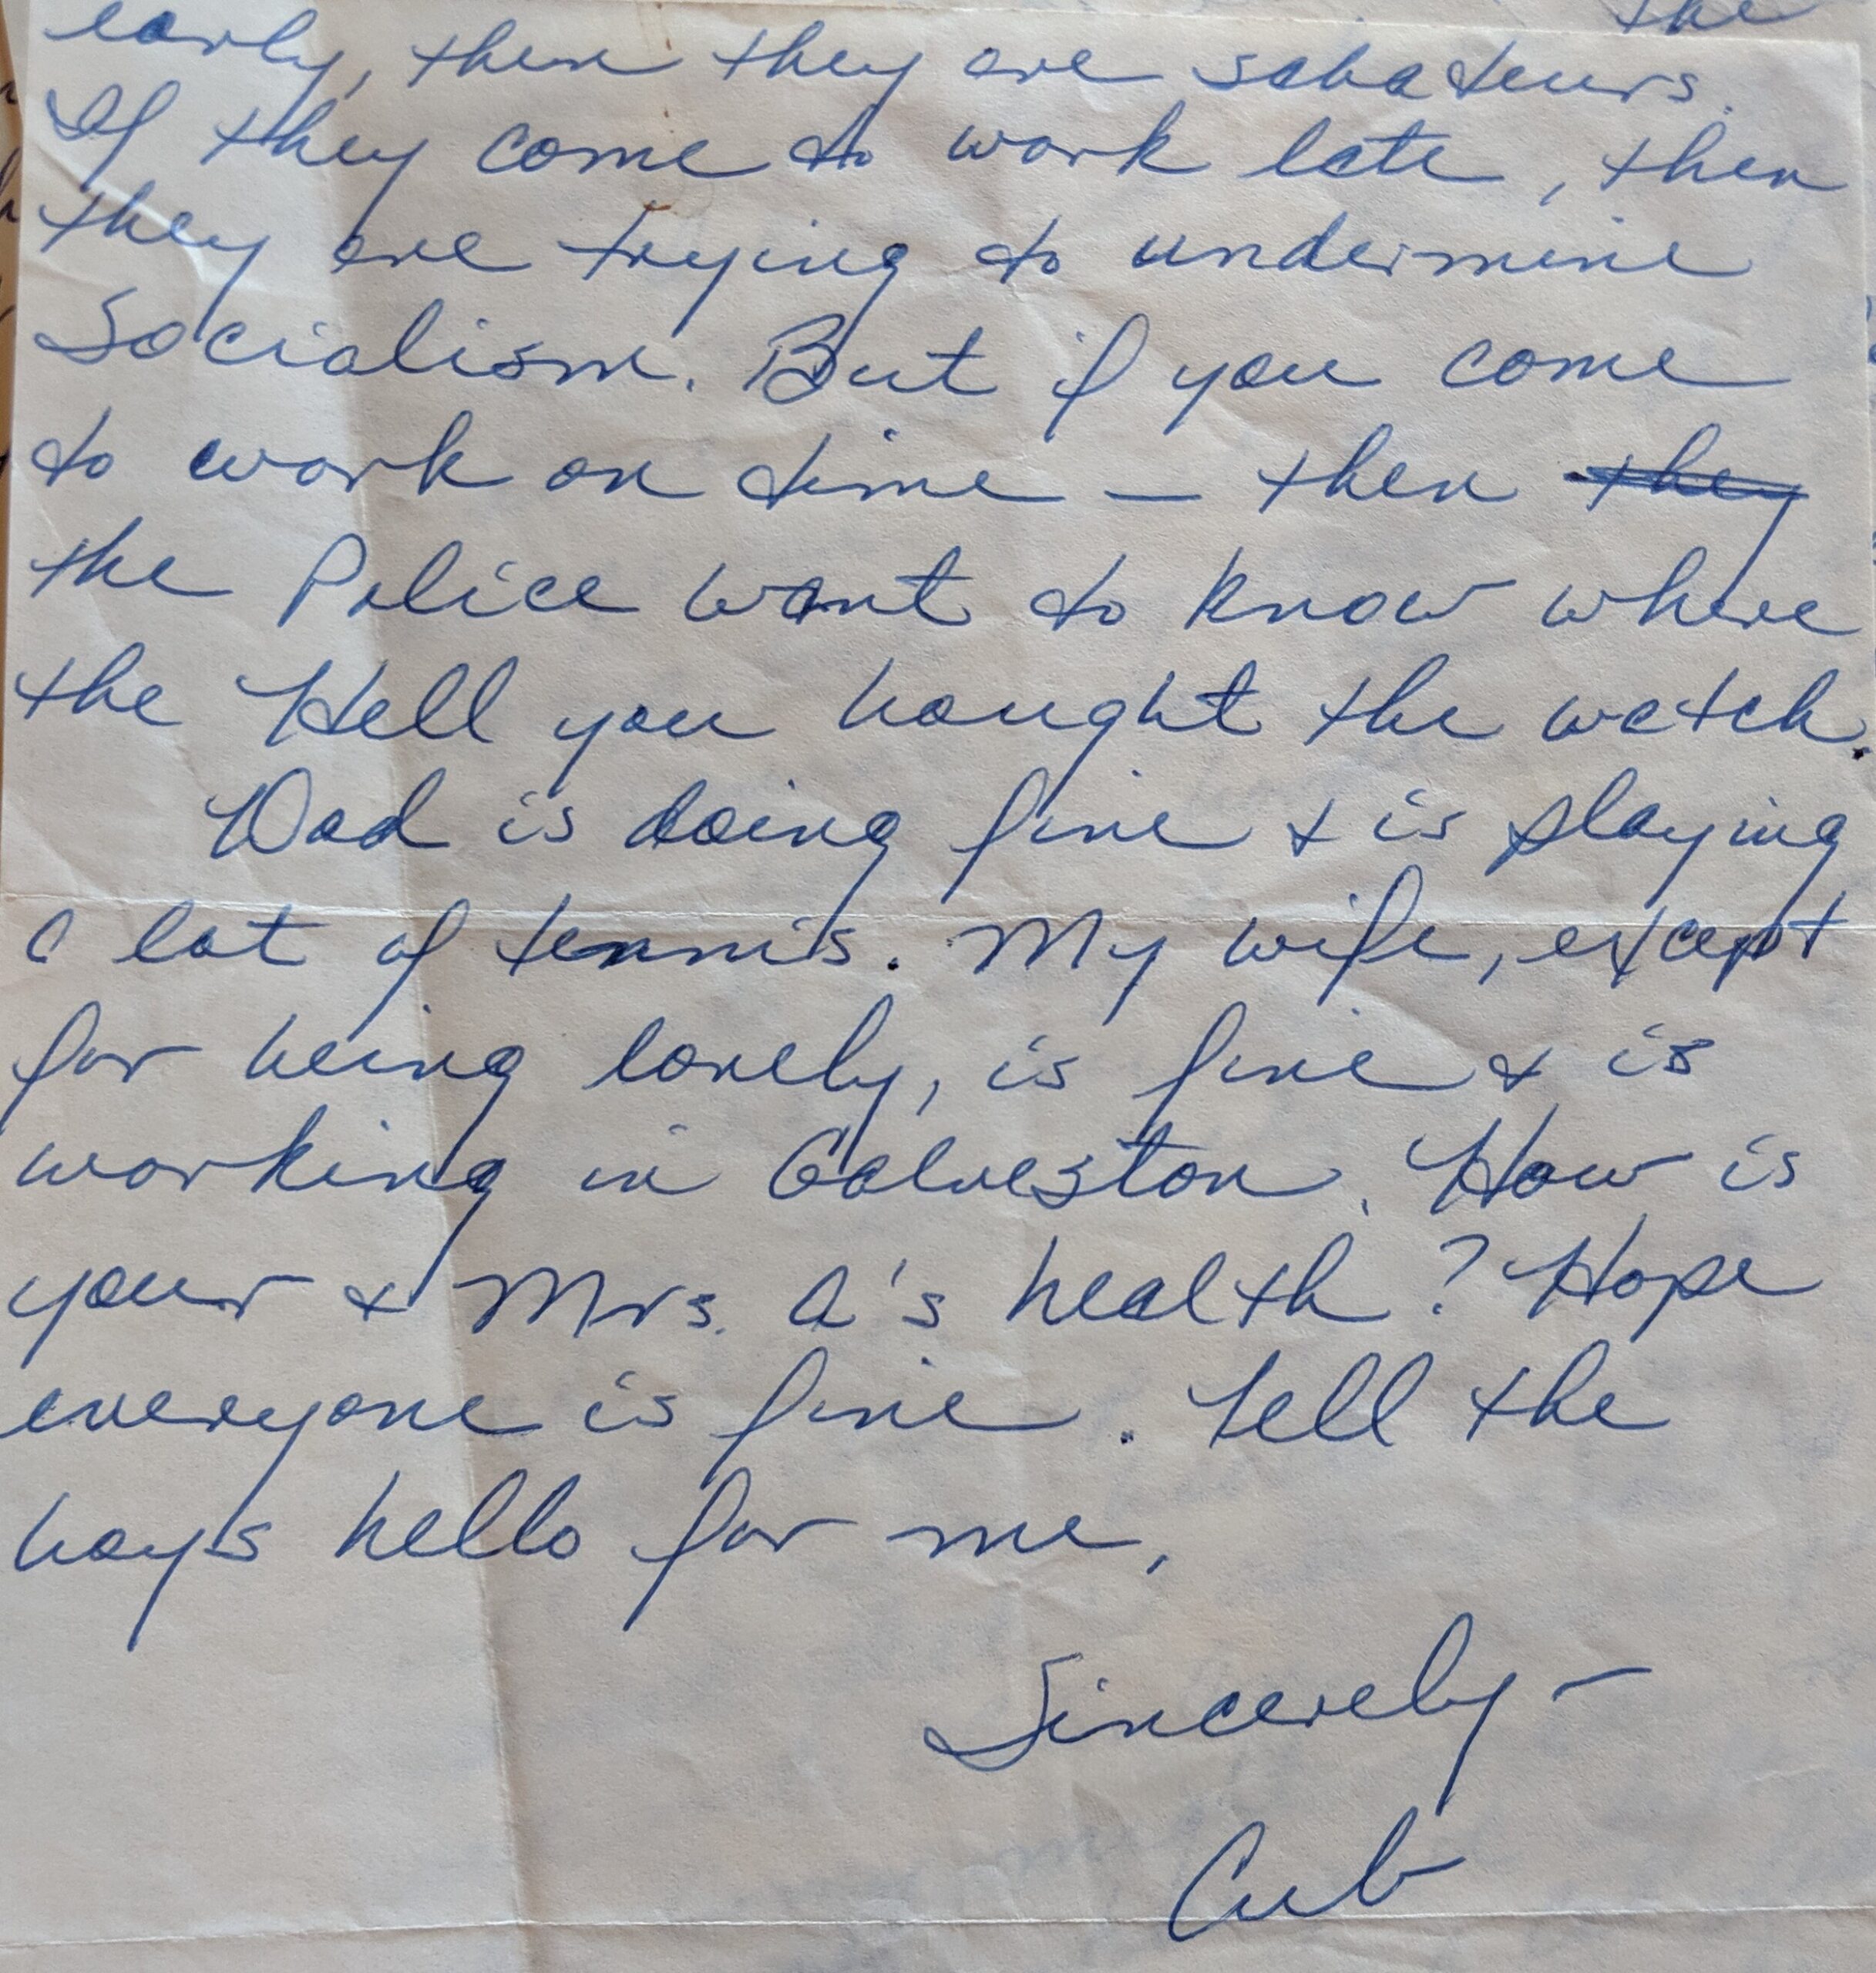 the
early, then they are sabateurs.
If they come to work late, then
they are trying to undermine
Socialism. But if you come
to work on time — then they
the Police want to know where
the Hell you bought the watch.
Dad is doing fine & is playing
a lot of tennis. My wife, except
for being lonely, is fine & is
working in Galveston. How is
your & Mrs. A's health? Hope
everyone is fine. Tell the
boys hello for me,
Sincerely —
Cub